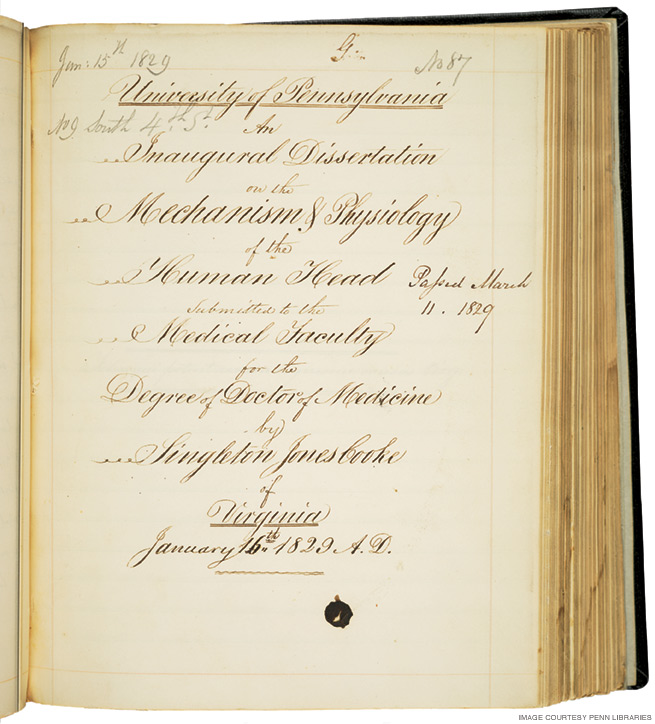 Jan: 15th 1829
G.
No 87
University of Pennsylvania
No 9 South 4th St.
An
Inaugural Dissertation
on the
Mechanism & Physiology
of the
Human Head
Passed March
11. 1829
Submitted to the
Medical Faculty
for the
Degree of Doctor of Medicine
by
Singleton Jones Cooke
of
Virginia
January 16th 1829 A.D.
IMAGE COURTESY PENN LIBRARIES